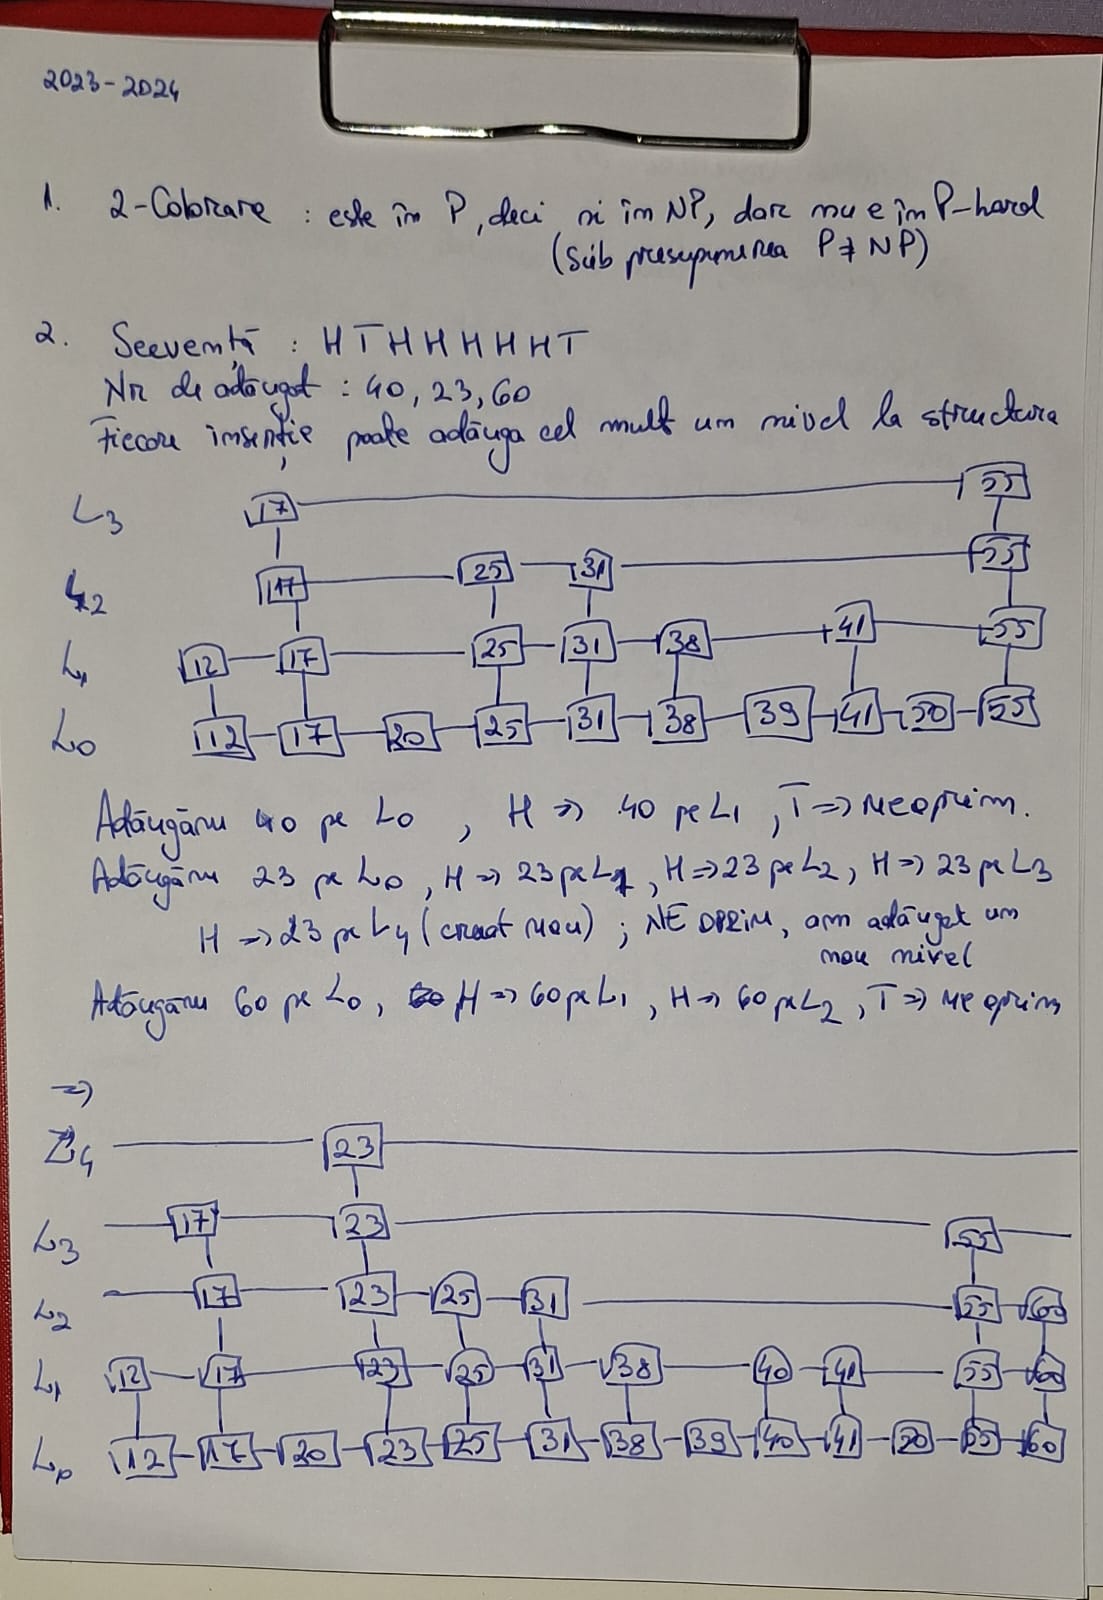 2023-2024
1. 2-Colorare : este în P, deci și în NP, dar nu e în P-hard
(Sub presupunerea P ≠ NP)
2. Secvență : H T H H H H H H T
Nr de adăugat : 40, 23, 60
Fiecare inserție poate adăuga cel mult un nivel la structura
L3 17 55
L2 17 25 31 55
L1 12 17 25 31 38 41 55
L0 12 17 20 25 31 38 39 41 50 55
Adăugăm 40 pe L0, H => 40 pe L1, T => ne oprim.
Adăugăm 23 pe L0, H => 23 pe L1, H => 23 pe L2, H => 23 pe L3
H => 23 pe L4 (creat nou) ; NE OPRIM, am adăugat un
nou nivel
Adăugăm 60 pe L0, H => 60 pe L1, H => 60 pe L2, T => ne oprim
=>
L4 23
L3 17 23 55
L2 17 23 25 31 55 60
L1 12 17 23 25 31 38 40 41 55 60
L0 12 17 20 23 25 31 38 39 40 41 50 55 60